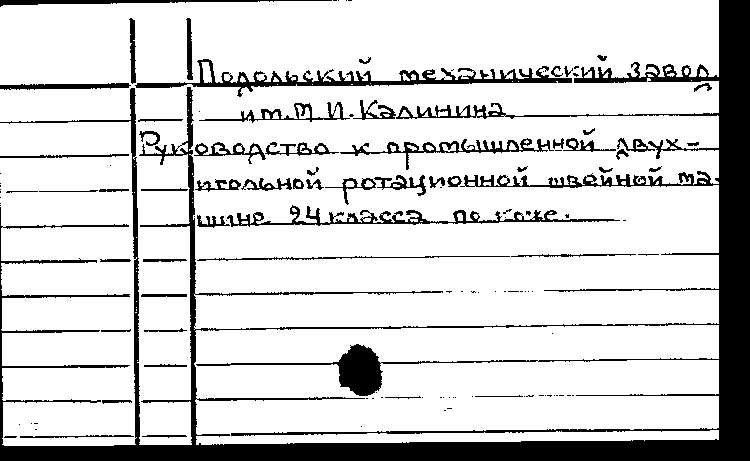 Подольский механический завод
им. М. И. Калинина.
Руководство к промышленной двух-
игольной ротационной швейной ма-
шине 24 класса по коже.